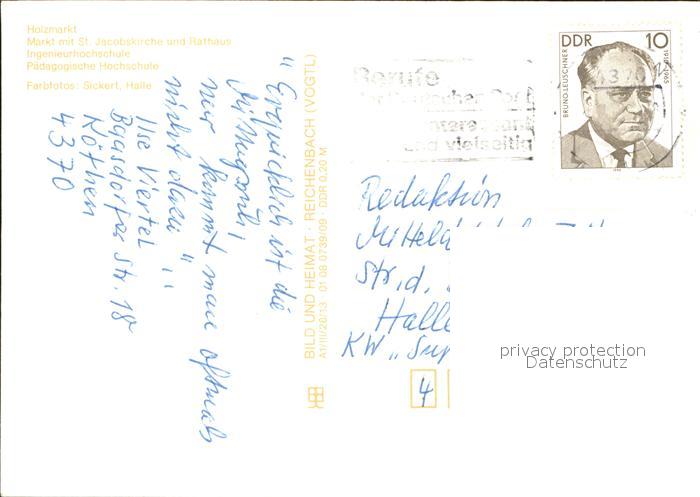 Holzmarkt
Markt mit St. Jacobskirche und Rathaus
Ingenieurhochschule
Pädagogische Hochschule
Farbfotos: Sickert, Halle
"Erquicklich ist die
Mittagszeit,
nur kommt man oftmals
nicht dazu"!!
Ilse Viertel
Baasdorfer Str. 18
Köthen
4370
BILD UND HEIMAT · REICHENBACH (VOGTL)
A1/III/26/13 01 08 0739/09 DDR 0,20 M
Berufe
Post
und vielseitig
DDR 10
BRUNO LEUSCHNER 1910-1965
Redaktion
Str. d.
Halle
KW "Sup
4
privacy protection
Datenschutz